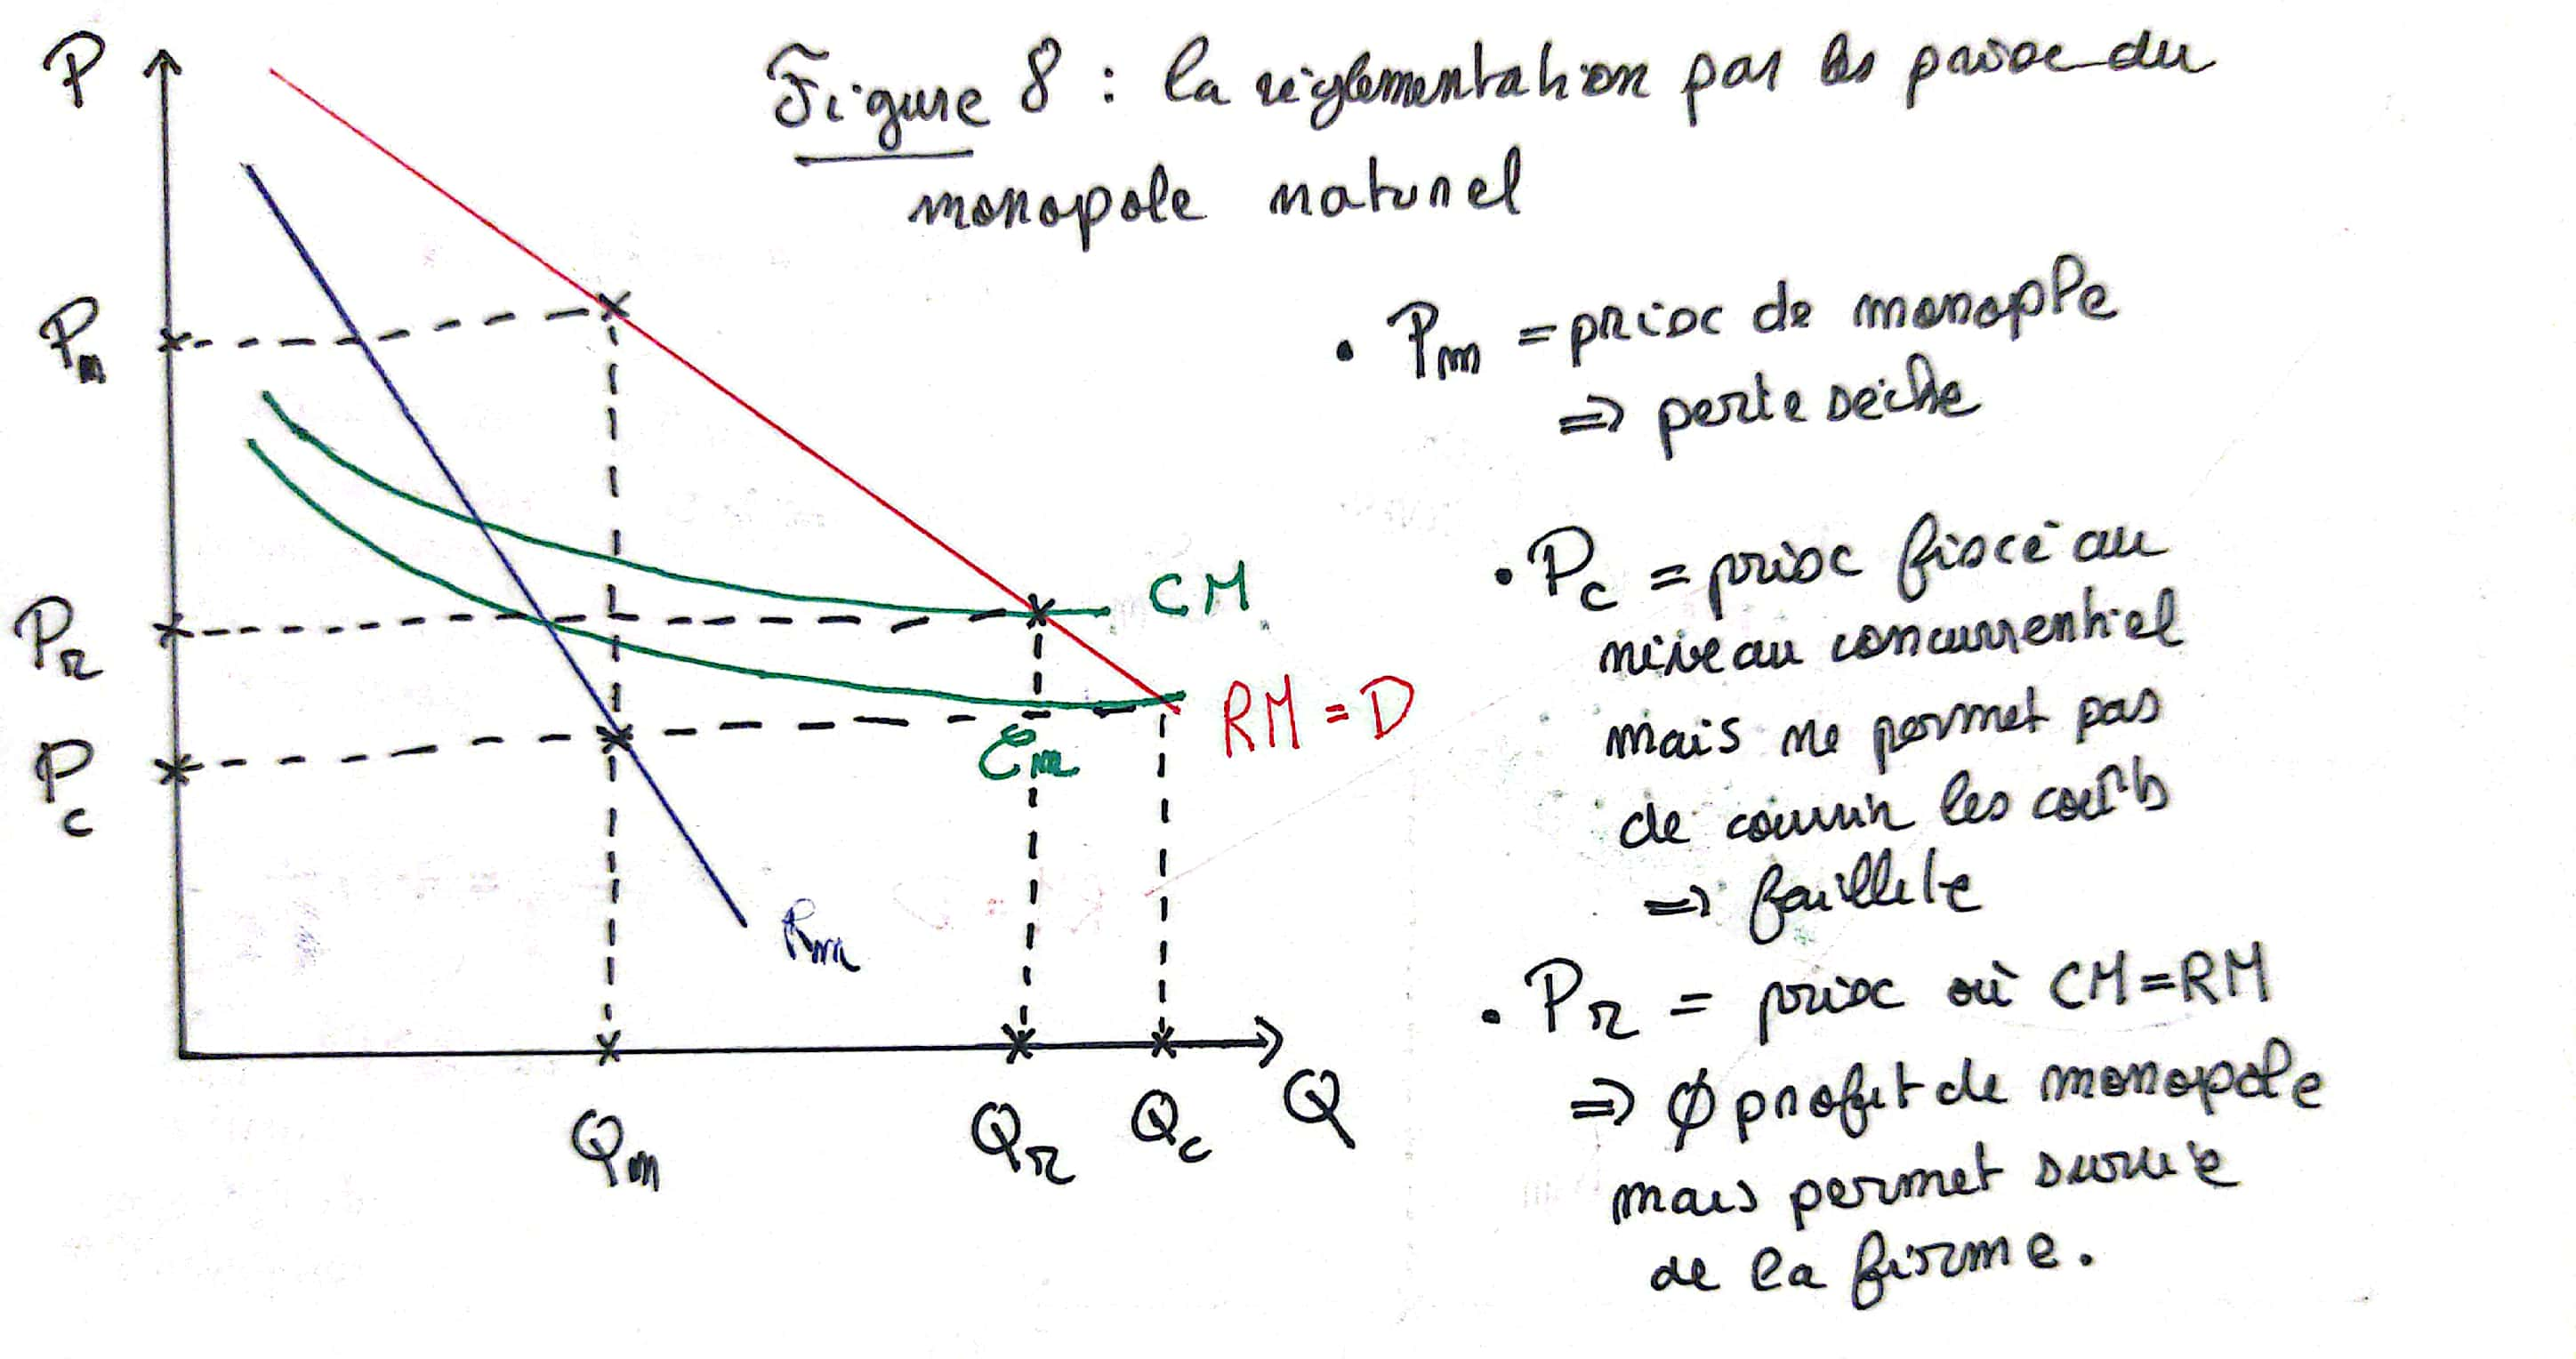 Figure 8 : la réglementation par les prix du
monopole naturel
P
Pm
PR
Pc
CM
RM = D
Cm
Rm
Qm
QR
Qc
Q
• Pm = prix de monople
⇒ perte sèche
• Pc = prix fixé au
niveau concurrentiel
mais ne permet pas
de couvrir les coûts
⇒ faillite
• PR = prix où CM=RM
⇒ Ø profit de monopole
mais permet survie
de la firme.